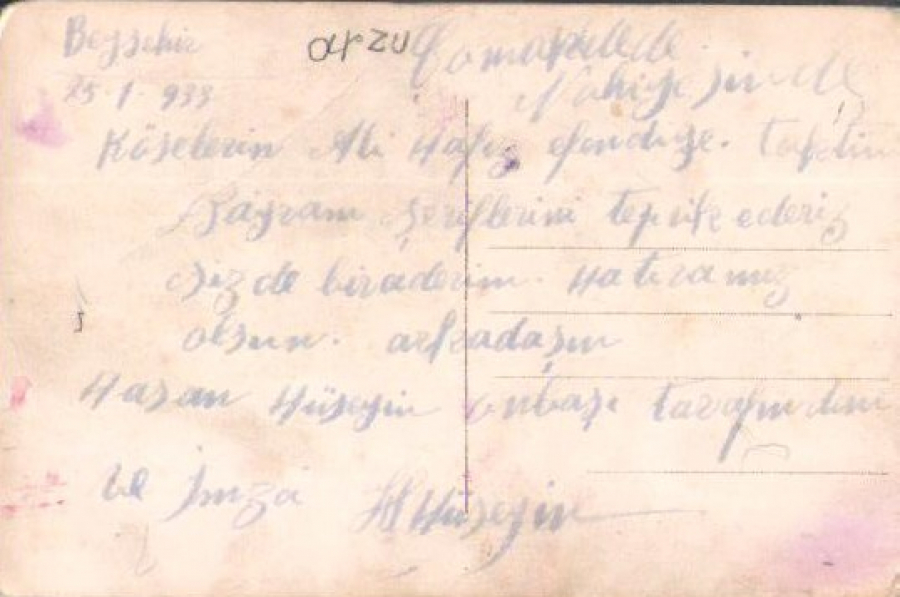 Beyşehir
25-1-933
arzu
Nahiyesinde
Köselerin Ali Hafız efendiye.
Bayram Şereflerini teprik ederiz
sizde biraderim. Hatıramız
olsun. arkadaşın
Hasan Hüseyin onbaşı tarafından
ve İmza H Hüseyin